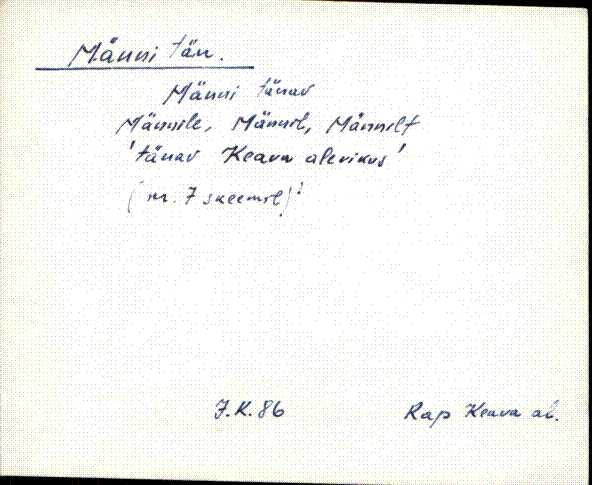 Männi tän.
Männi tänav
Männile, Männil, Männilt
'tänav Keava alevikus'
(nr. 7 skeemil)
J.K. 86
Rap Keava al.